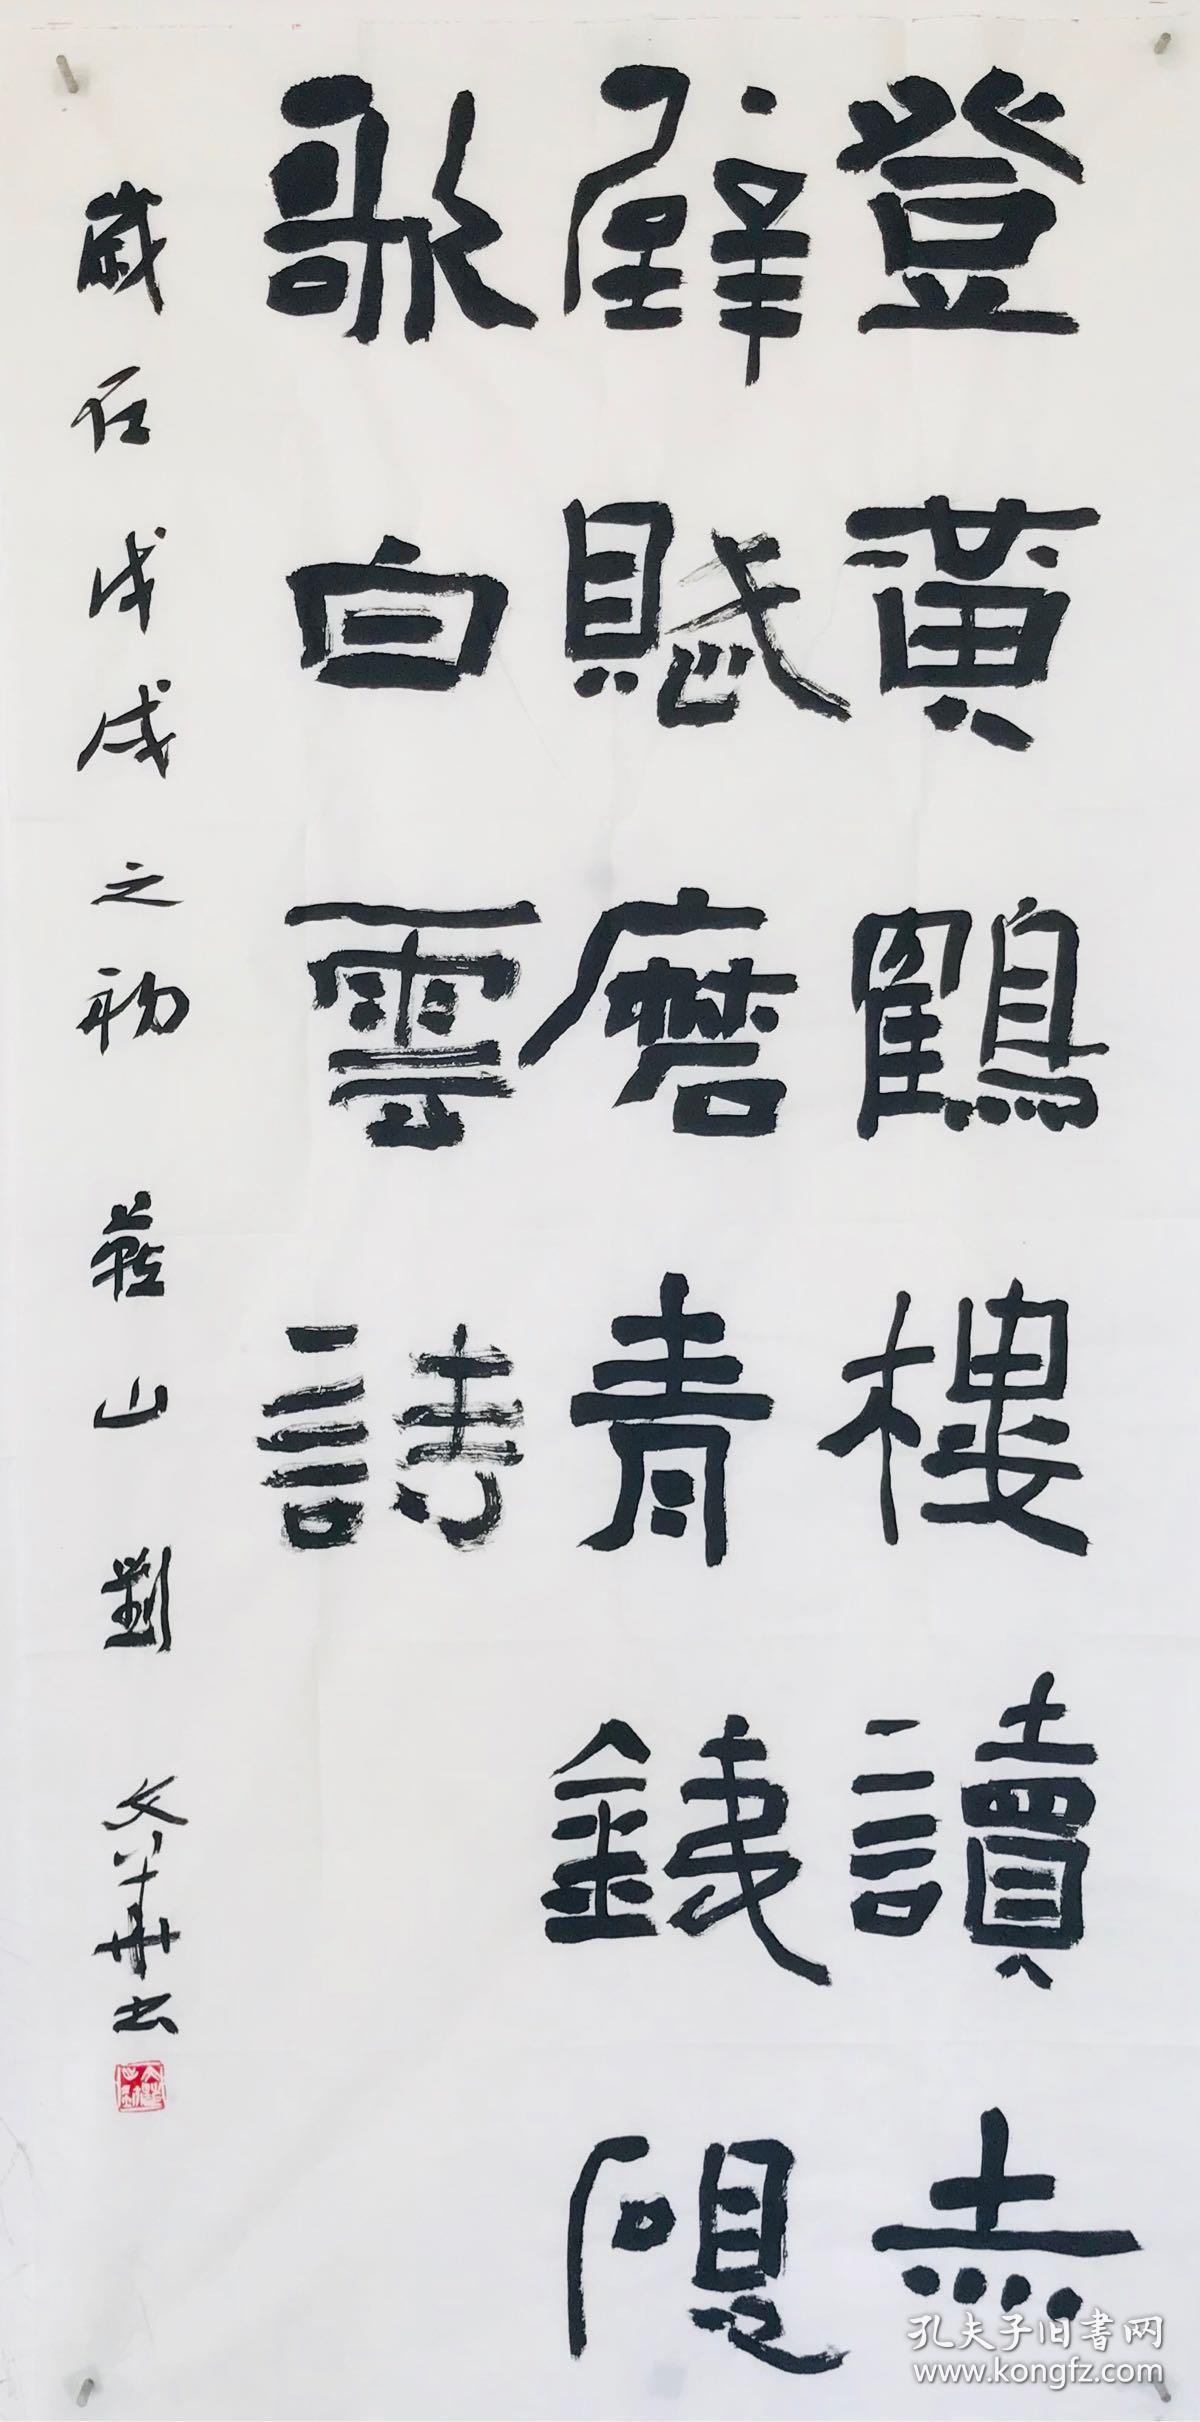 登黄鶴樓讀赤
壁賦磨青銕硯
歌白雲詩
歲在戊戌之初 山劉文華书
孔夫子旧書网
www.kongfz.com